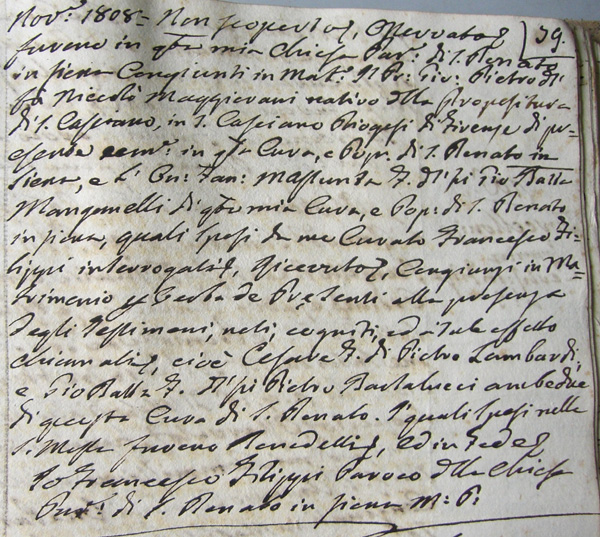 Nov.e 1808= Non scoperto, Osservato 39.
furono in qta mia Chiesa Par.e di S. Renato
in siena Congiunti in Mat.o Il Pr: Gio: Pietro di
Niccolò Maggiorani nativo dlla Propositura
di S. Cassiano, in S. Casciano Diogesi di Firenze di pr=
esente comm: in qta Cura, e Pop: di S. Renato in
siena, e l' On: Fan: Massunta F. d'l pi Gio Batta
Manganelli di qta mia Cura, e Pop: di S. Renato
in siena, quali sposi da me Curato Francesco Fi=
lippi interrogati, ricevuto, Congiunsi in Ma=
trimonio p Verba de Presenti alla presenza
degli Testimoni, noti, cogniti, ed a tale effetto
chiamati, cioè Cesare F. di Pietro Lombardi,
e Gio Batta F. d'l pi Pietro Bartalucci ambedue
di questa Cura di S. Renato. I quali sposi nella
S. Messa furono Benedetti, ed in fede
Io Francesco Filippi Paroco dlla Chiesa
Par.e di S. Renato in siena M: P: